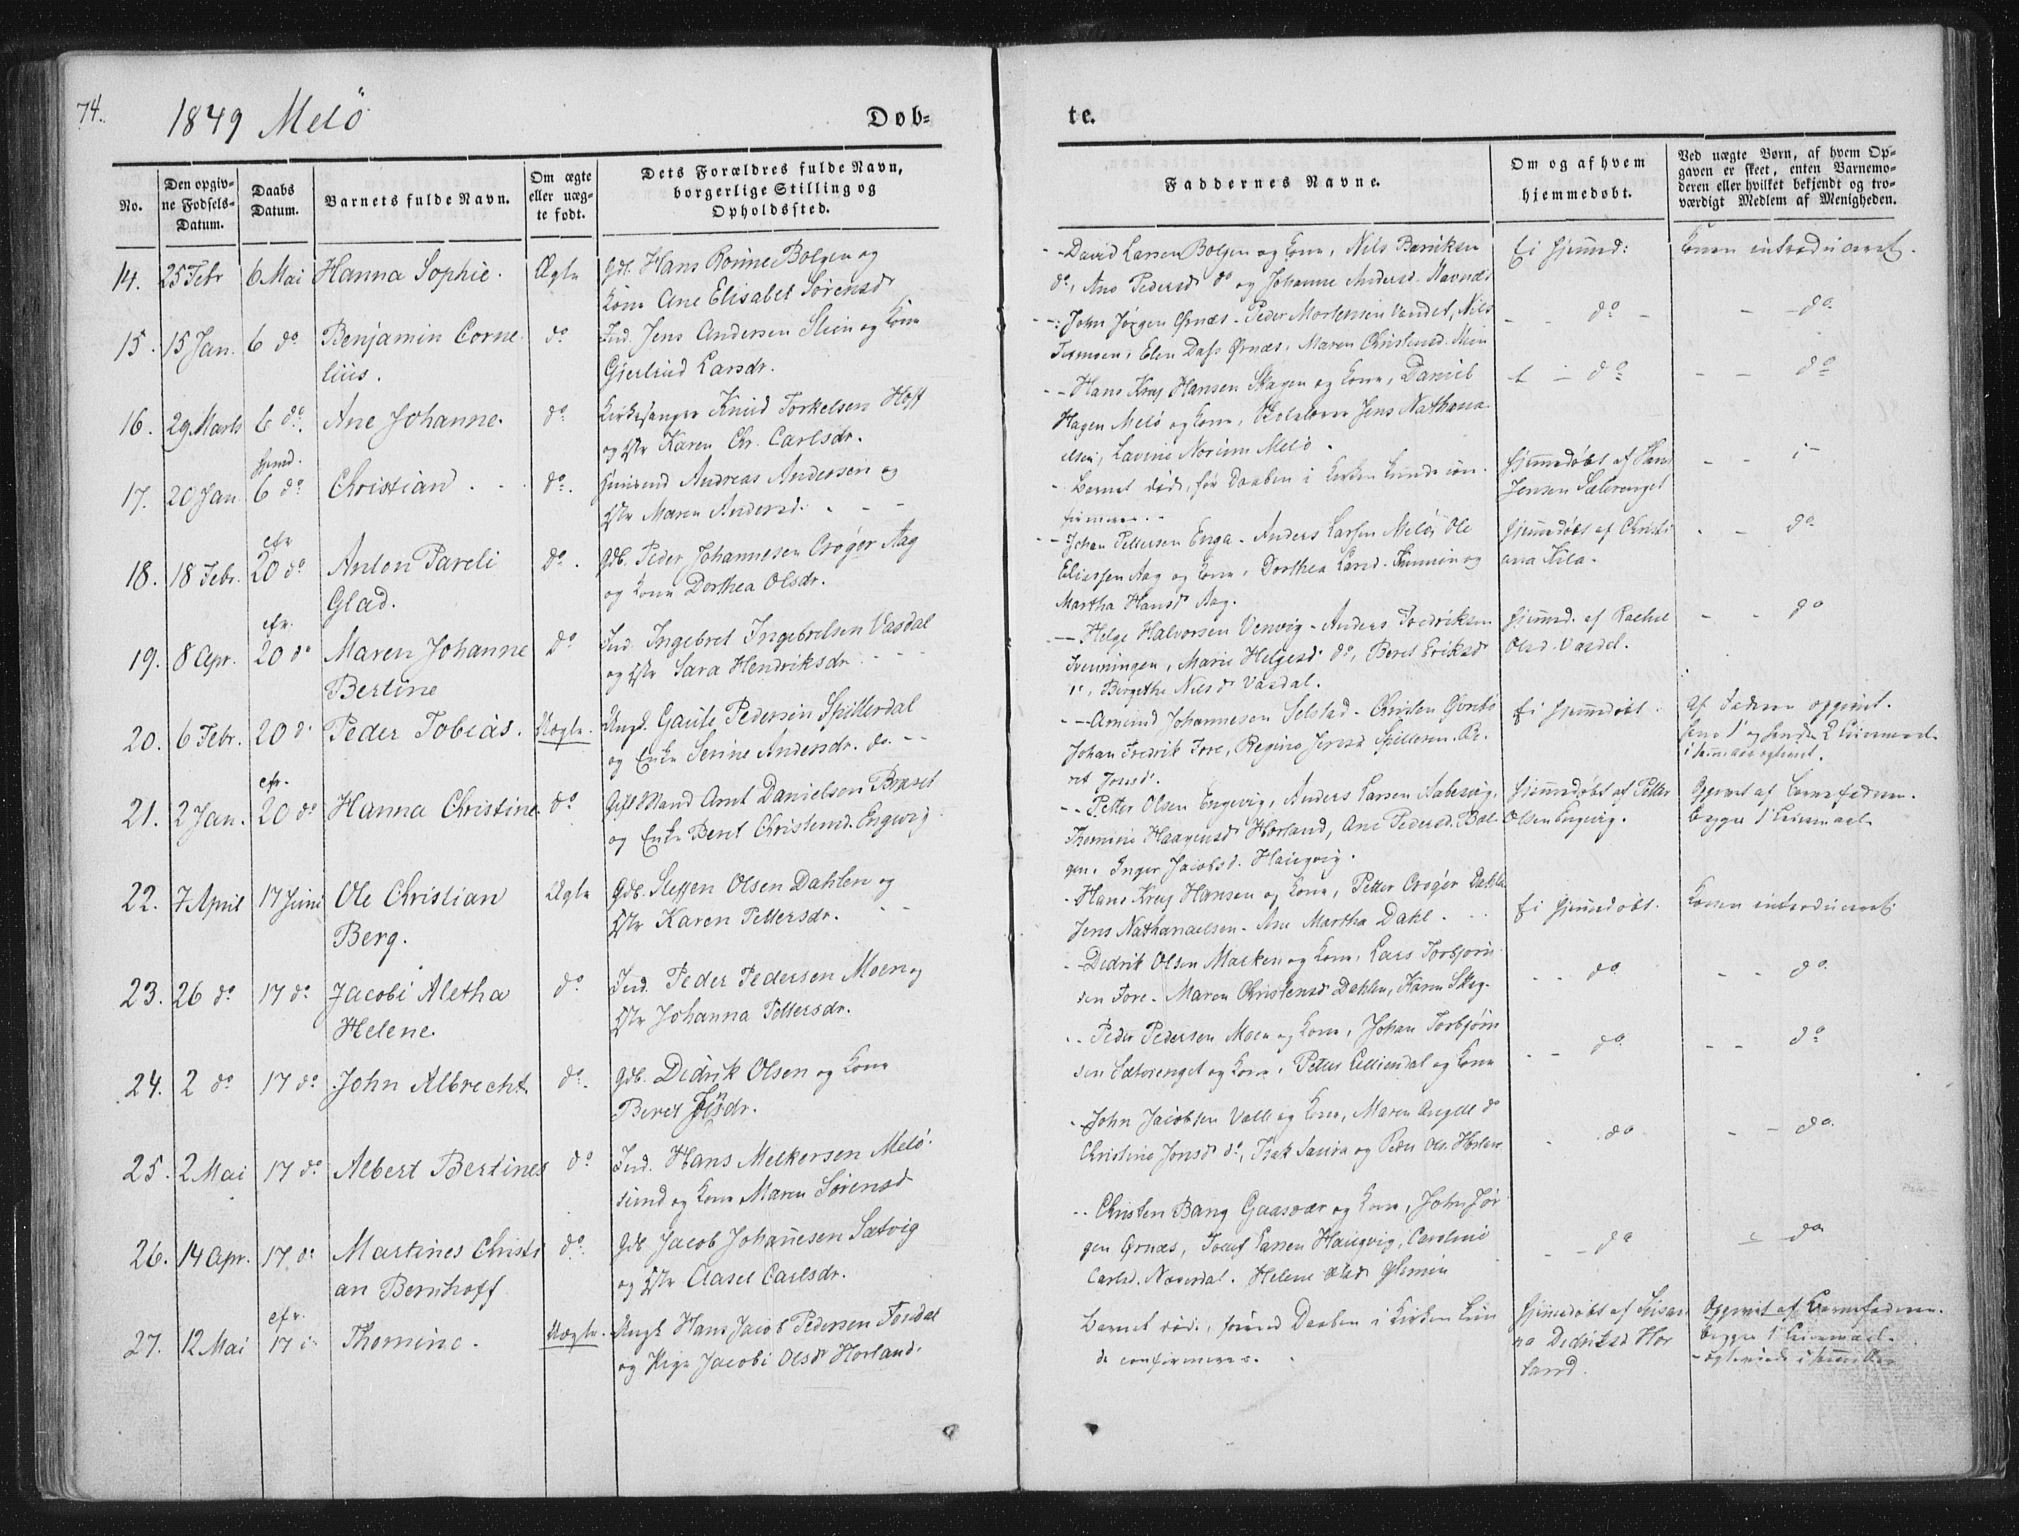 74.
1849 Melö
Døb-
te.
No.
Den opgiv-
ne Fødsels-
Datum.
Daabs
Datum.
Barnets fulde Navn.
Om ægte
eller uæg-
te født.
Dets Forældres fulde Navn,
borgerlige Stilling og
Opholdssted.
Faddernes Navne.
Om og af hvem
hjemmedøbt.
Ved uægte Børn, af hvem Op-
gaven er skeet, enten Barnemo-
deren eller hvilket bekjendt og tro-
værdigt Medlem af Menigheden.
14. 25 Febr 6 Mai Hanna Sophie. Ægte Gdb. Hans Rönne Bolgen og
Kone Ane Elisabet Sörensdr
David Larsen Bolgen og Kone, Nils
do, Ane Pedersdr do og Johanne Andersd. Navnæs
Ei hjemmed: Konen introduceret.
15. 15 Jan. 6 do Benjamin Corne-
lius. do Ind. Jens Andersen Steen og Kone
Gjertrud Larsdr.
John Jörgen Örnæs - Peder Mortensen Vandet, Nils
Elen Dass Örnæs, Maren Christensd.
do do
16. 29 Marts 6 do Ane Johanne. do Kirkesanger Knud Torkelsen Hoff
og Hr Karen Chr. Carlsdr.
Hans Krey Hansen Skagen og Kone, Daniel
Hagen Melö og Kone, Skolelærer Jens Nathana-
elsen, Lavine Norum Melö.
do do
17. 20 Jan hjemd. 6 do Christian do. Andreas Andersen og
Hr Maren Andersd.
Barnet döde, för Daaben i Kirken kunde con-
firmeres.
hjemmedöbt af Hans
Jensen Sætvenget
18. 18 Febr. efr 20 do Anton Pareli
Glad. do. Gdb. Peder Johannesen Crogör Aag
og Kone Dorthea Olsdr.
Johan Pettersen Enga - Anders Larsen Melö, Ole
Eliassen Aag og Kone, Dorthea Larsd. og
Martha Hansdr Aag.
hjemmedöbt af Christi-
ana Kila. do
19. 8 Apr. efr. 20 do Maren Johanne
Bertine do Ind. Ingebret Ingebretsen Vasdal
og Hr Sara Hendriksdr.
Helge Halvorsen Venvig - Anders Fredriksen
Svenningen, Marie Helgesd do, Beret Eriksdr
Bergethe Nilsdr Vasdal.
hjemmd. af Rachel
Olsd. Vasdal. do
20. 6 Febr. 20 do Peder Tobias. Uægte. Ungk. Gaute Pedersen Spilderdal
og Enke Serine Andersdr. do.
Amund Johannesen Selstad - Christen
Johan Fredrik Fore, Regine Jensd Spilderen. Be-
ret Jonsd.
Ei hjemmedöbt. Af Faderen opgivet.
21. 2 Jan. efr. 20 do Hanna Christine. do Gift Mand Arnt Danielsen Braset
og Enke Beret Christensd. Engevig
Petter Olsen Engevig, Anders Larsen Aabesvig,
Thomine Haagensdr Horland, Ane Pedersd. Bol-
gen. Inger Jacobsd. Haugvig.
hjemmedöbt af Petter
Olsen Engevig.
Opgivet af Barnefaderen.
begges 1ste Leiermaal.
22. 7 April 17 Juni Ole Christian
Berg. Ægte Gdb. Steffen Olsen Dahlen og
Hr Karen Pettersdr.
Hans Krey Hansen og Kone, Petter Crogör Dahle
Jens Nathanaelsen - Ane Martha Dahl.
Ei hjemmedöbt. Konen introduceret.
23. 26 do 17 do Jacobi Aletha
Helene. do Ind. Peder Pedersen Moen og
Hr Johanna Pettersdr.
Didrik Olsen Marken og Kone, Lars Torbjörn-
sen Fore - Maren Christensdr Dahlen, Karen Skog-
do do
24. 2 do 17 do John Albrecht do. Gdb. Didrik Olsen og Kone
Beret Jonsdr.
Peder Pedersen Moen og Kone, Johan Torbjörn-
sen Sætvenget og Kone, Petter Lilliendal og Kone
do do
25. 2 Mai 17 do Albert Bertines do Ind. Hans Melkersen Melö-
sund og Kone Maren Sörensd
John Jacobsen Valle og Kone, Maren Angell do
Christine Jonsdr do, Isak Savira og Peder Ols. Horland
do do
26. 14 Apr. 17 do Martines Christi-
an Bernhoff do. Gdb Jacob Johannesen Sætvig
og Hr Aasel Carlsdr.
Christen Bang Gaasvær og Kone, John Jör-
gen Örnæs, Josef Larsen Haugvig, Caroline
Carlsd. Næverdal. Helene
do do
27. 12 Mai efr. 17 do Thomine. Uægte. Ungk Hans Jacob Pedersen Fondal
og Pige Jacobi Olsdr Horland.
Barnet död, forend Daaben i Kirken kun-
de confirmeres.
hjemmedöbt af Susan-
na Didriksd Hor-
land.
Opgivet af Barnefaderen.
begges 1ste Leiermaal